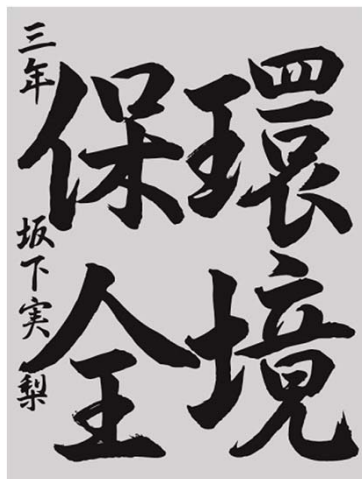 環境
保全
三年 坂下実梨